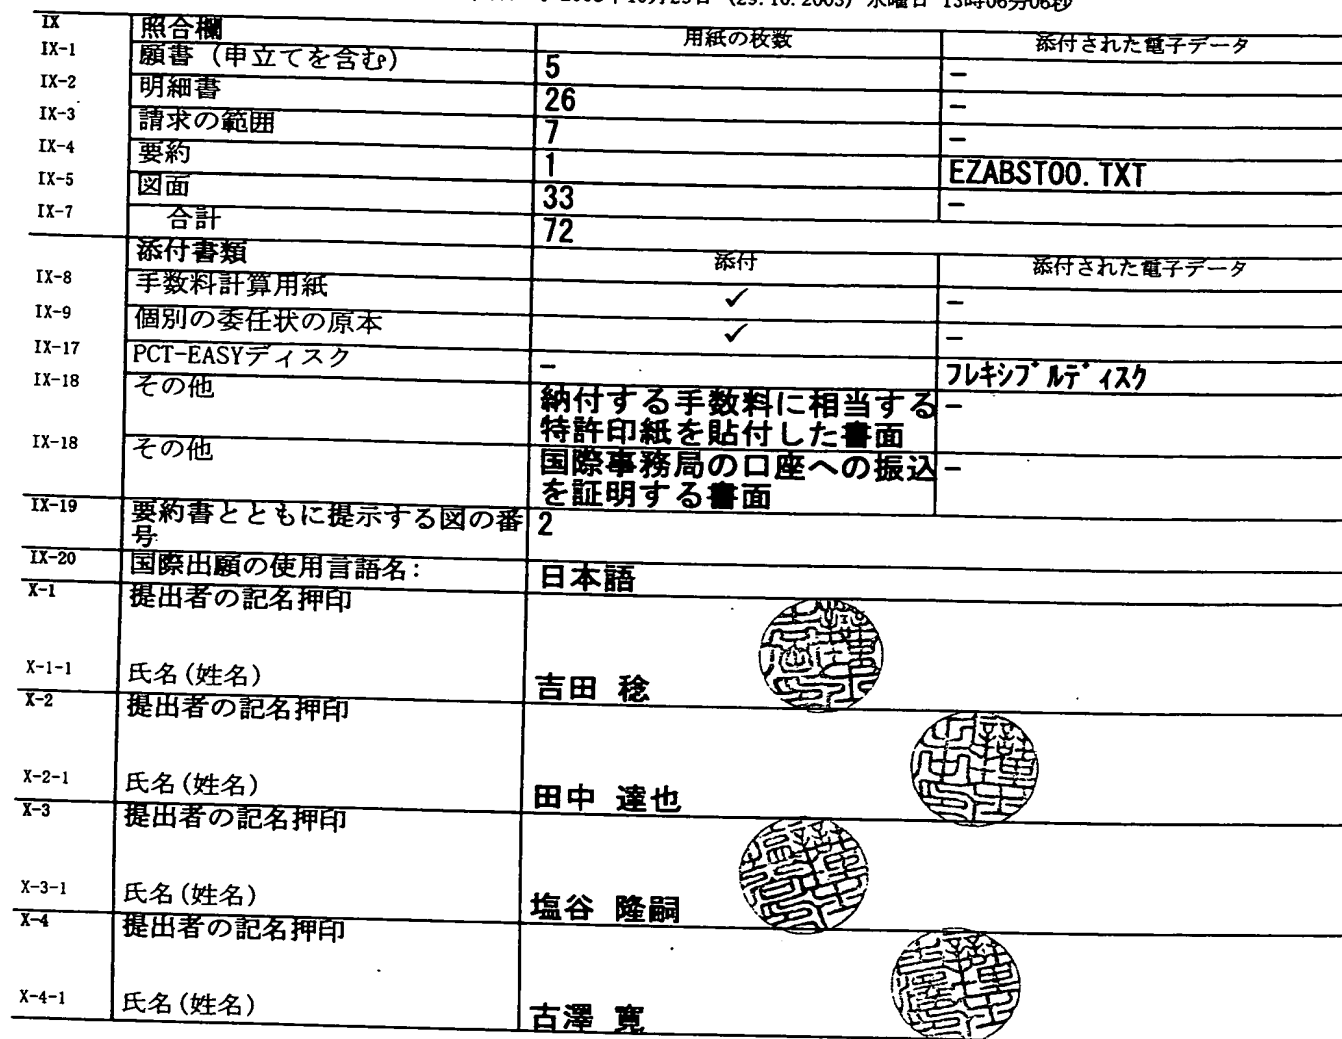 2003年10月29日 (29.10.2003) 水曜日 13時06分06秒
IX 照合欄 用紙の枚数 添付された電子データ
IX-1 願書（申立てを含む） 5 -
IX-2 明細書 26 -
IX-3 請求の範囲 7 -
IX-4 要約 1 EZABST00.TXT
IX-5 図面 33 -
IX-7 合計 72
添付書類 添付 添付された電子データ
IX-8 手数料計算用紙 ✓ -
IX-9 個別の委任状の原本 ✓ -
IX-17 PCT-EASYディスク - フレキシブルディスク
IX-18 その他 納付する手数料に相当する -
特許印紙を貼付した書面
IX-18 その他 国際事務局の口座への振込 -
を証明する書面
IX-19 要約書とともに提示する図の番 2
号
IX-20 国際出願の使用言語名: 日本語
X-1 提出者の記名押印
X-1-1 氏名(姓名) 吉田 稔
X-2 提出者の記名押印
X-2-1 氏名(姓名) 田中 達也
X-3 提出者の記名押印
X-3-1 氏名(姓名) 塩谷 隆嗣
X-4 提出者の記名押印
X-4-1 氏名(姓名) 古澤 寛